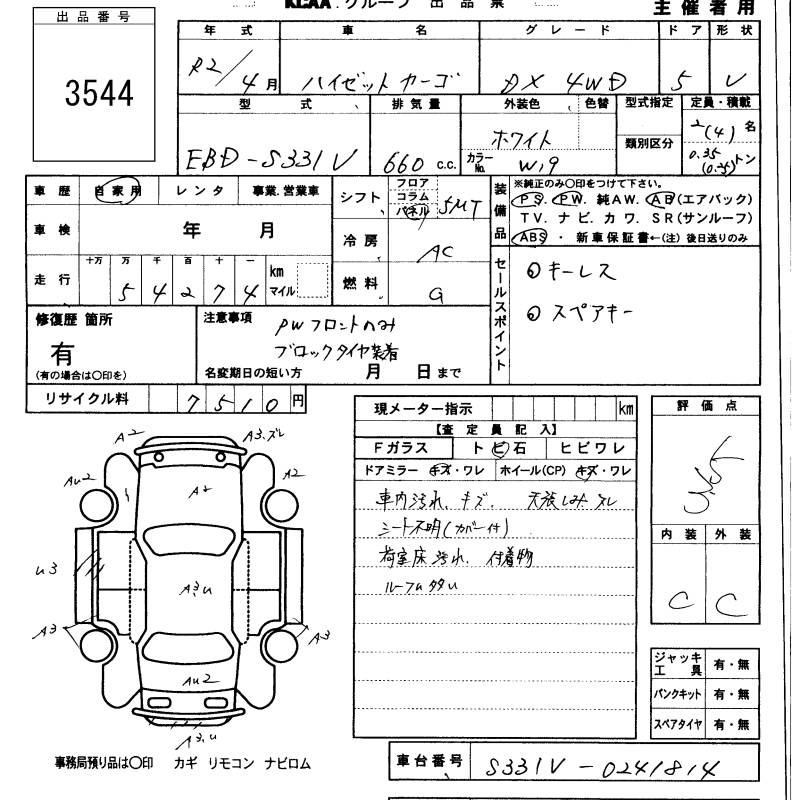 KCAA グループ 出品票
主催者用
出品番号
3544
年式 車名 グレード ドア 形状
R2/4月 ハイゼットカーゴ DX 4WD 5 V
型式 排気量 外装色 色替 型式指定 定員・積載
類別区分
EBD-S331V 660 c.c. ホワイト カラーNo. W19 2(4)名 0.35(0.25)トン
車歴 自家用 レンタ 事業.営業車
車検 年 月
走行 十万 万 千 百 十 一 km マイル
5 4 2 7 4
シフト フロア コラム パネル 5MT
冷房 AC
燃料 G
装備品 ※純正のみ〇印をつけて下さい。
PS. PW. 純AW. AB(エアバック)
TV. ナビ. カワ. SR(サンルーフ)
ABS ・ 新車保証書←(注) 後日送りのみ
セールスポイント
◎キーレス
◎スペアキー
修復歴 箇所
有
(有の場合は〇印を)
注意事項
PWフロントのみ
ブロックタイヤ装着
名変期日の短い方 月 日まで
リサイクル料 7510円
現メーター指示 km
【査定員記入】
Fガラス トビ石 ヒビワレ
ドアミラー キズ・ワレ ホイール(CP) キズ・ワレ
車内汚れ、キズ、 天張しみ ズレ
シート不明(カバー付)
荷室床汚れ、 付着物
ルーフム
評価点
内装 外装
C C
A2 A3.ズレ
AU2 A2
A2
U3
A3.U
A3 A3
AU2
A3.U
ジャッキ工具 有・無
パンクキット 有・無
スペアタイヤ 有・無
事務局預り品は〇印 カギ リモコン ナビロム
車台番号 S331V-0241814